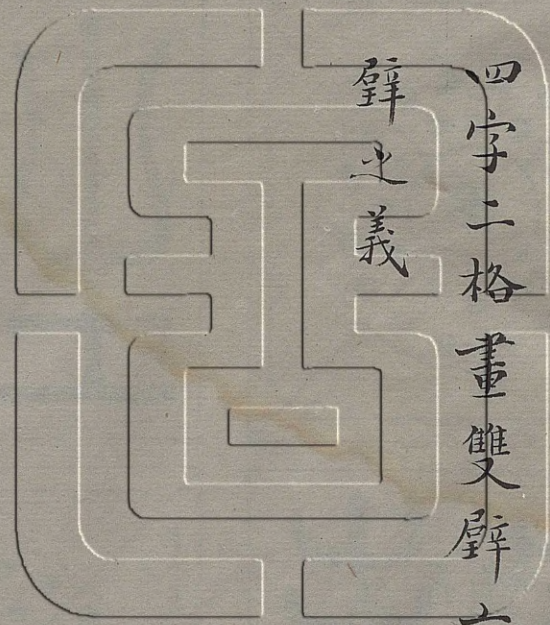 四字二格畫雙璧
璧之義